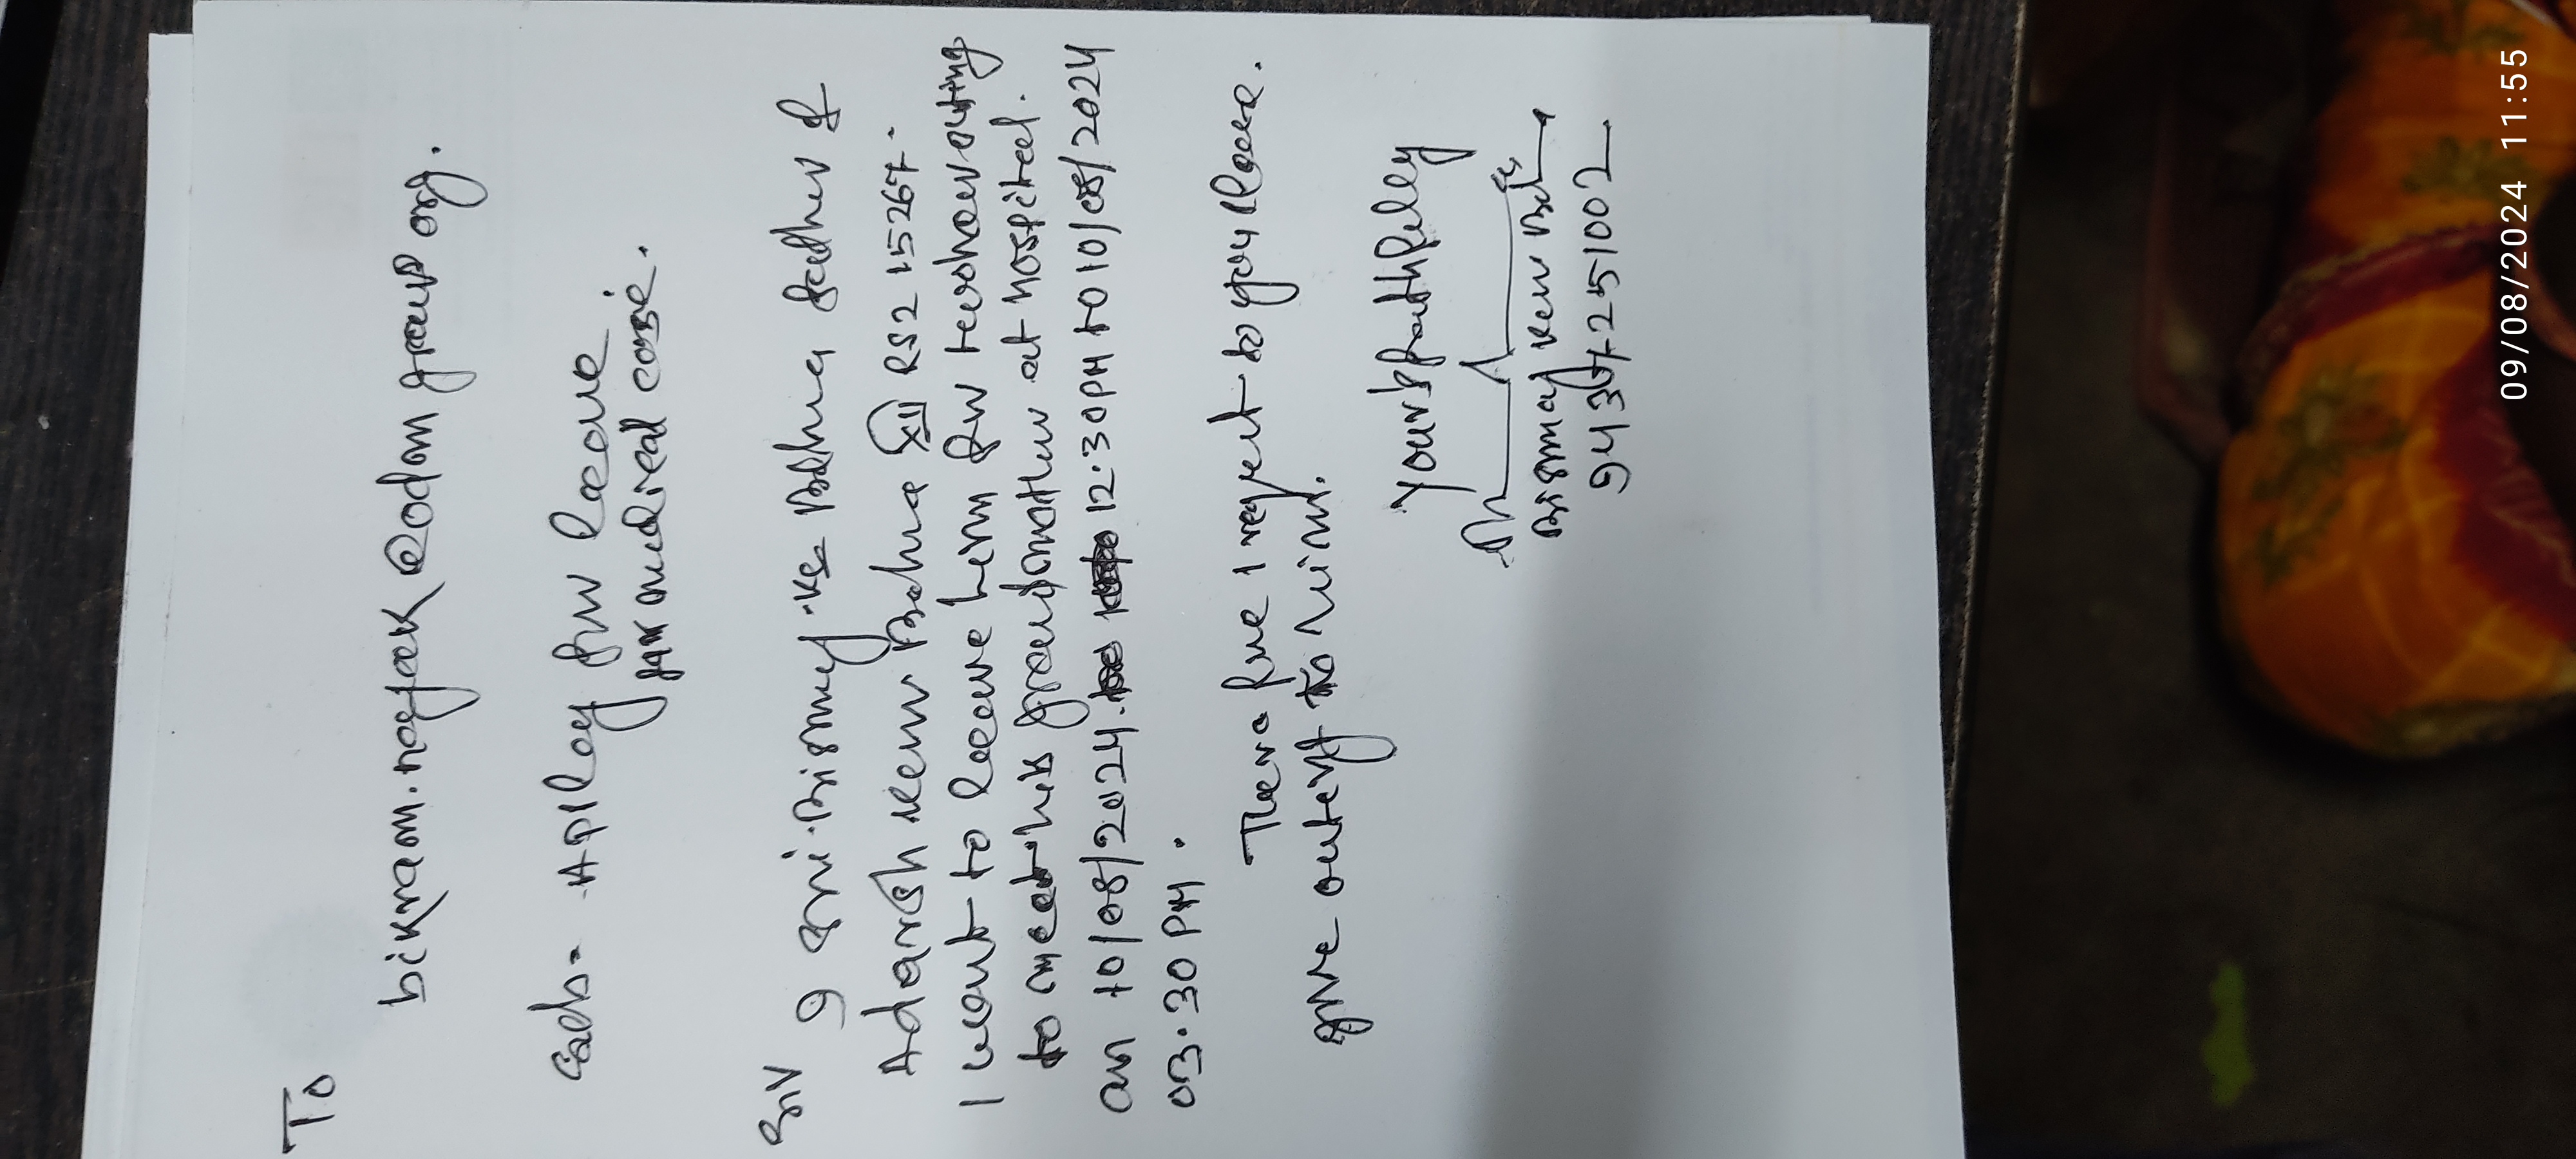 To
bikram.nayak@odm group org.
Sub- Apploy for leave
for medical case.
Sir
I Sri. Bismay Ks Badhua father of
Adarsh kenv Badhua XII RS2 15267.
I want to leave him for having outing
to meet his grandmother at hospital.
on 10/08/2024. 12.30PM to 10/08/2024
03.30 PM.
There fore I request to you Please
give outing to him.
Yours faithfully
Bismay
9437251002
09/08/2024 11:55